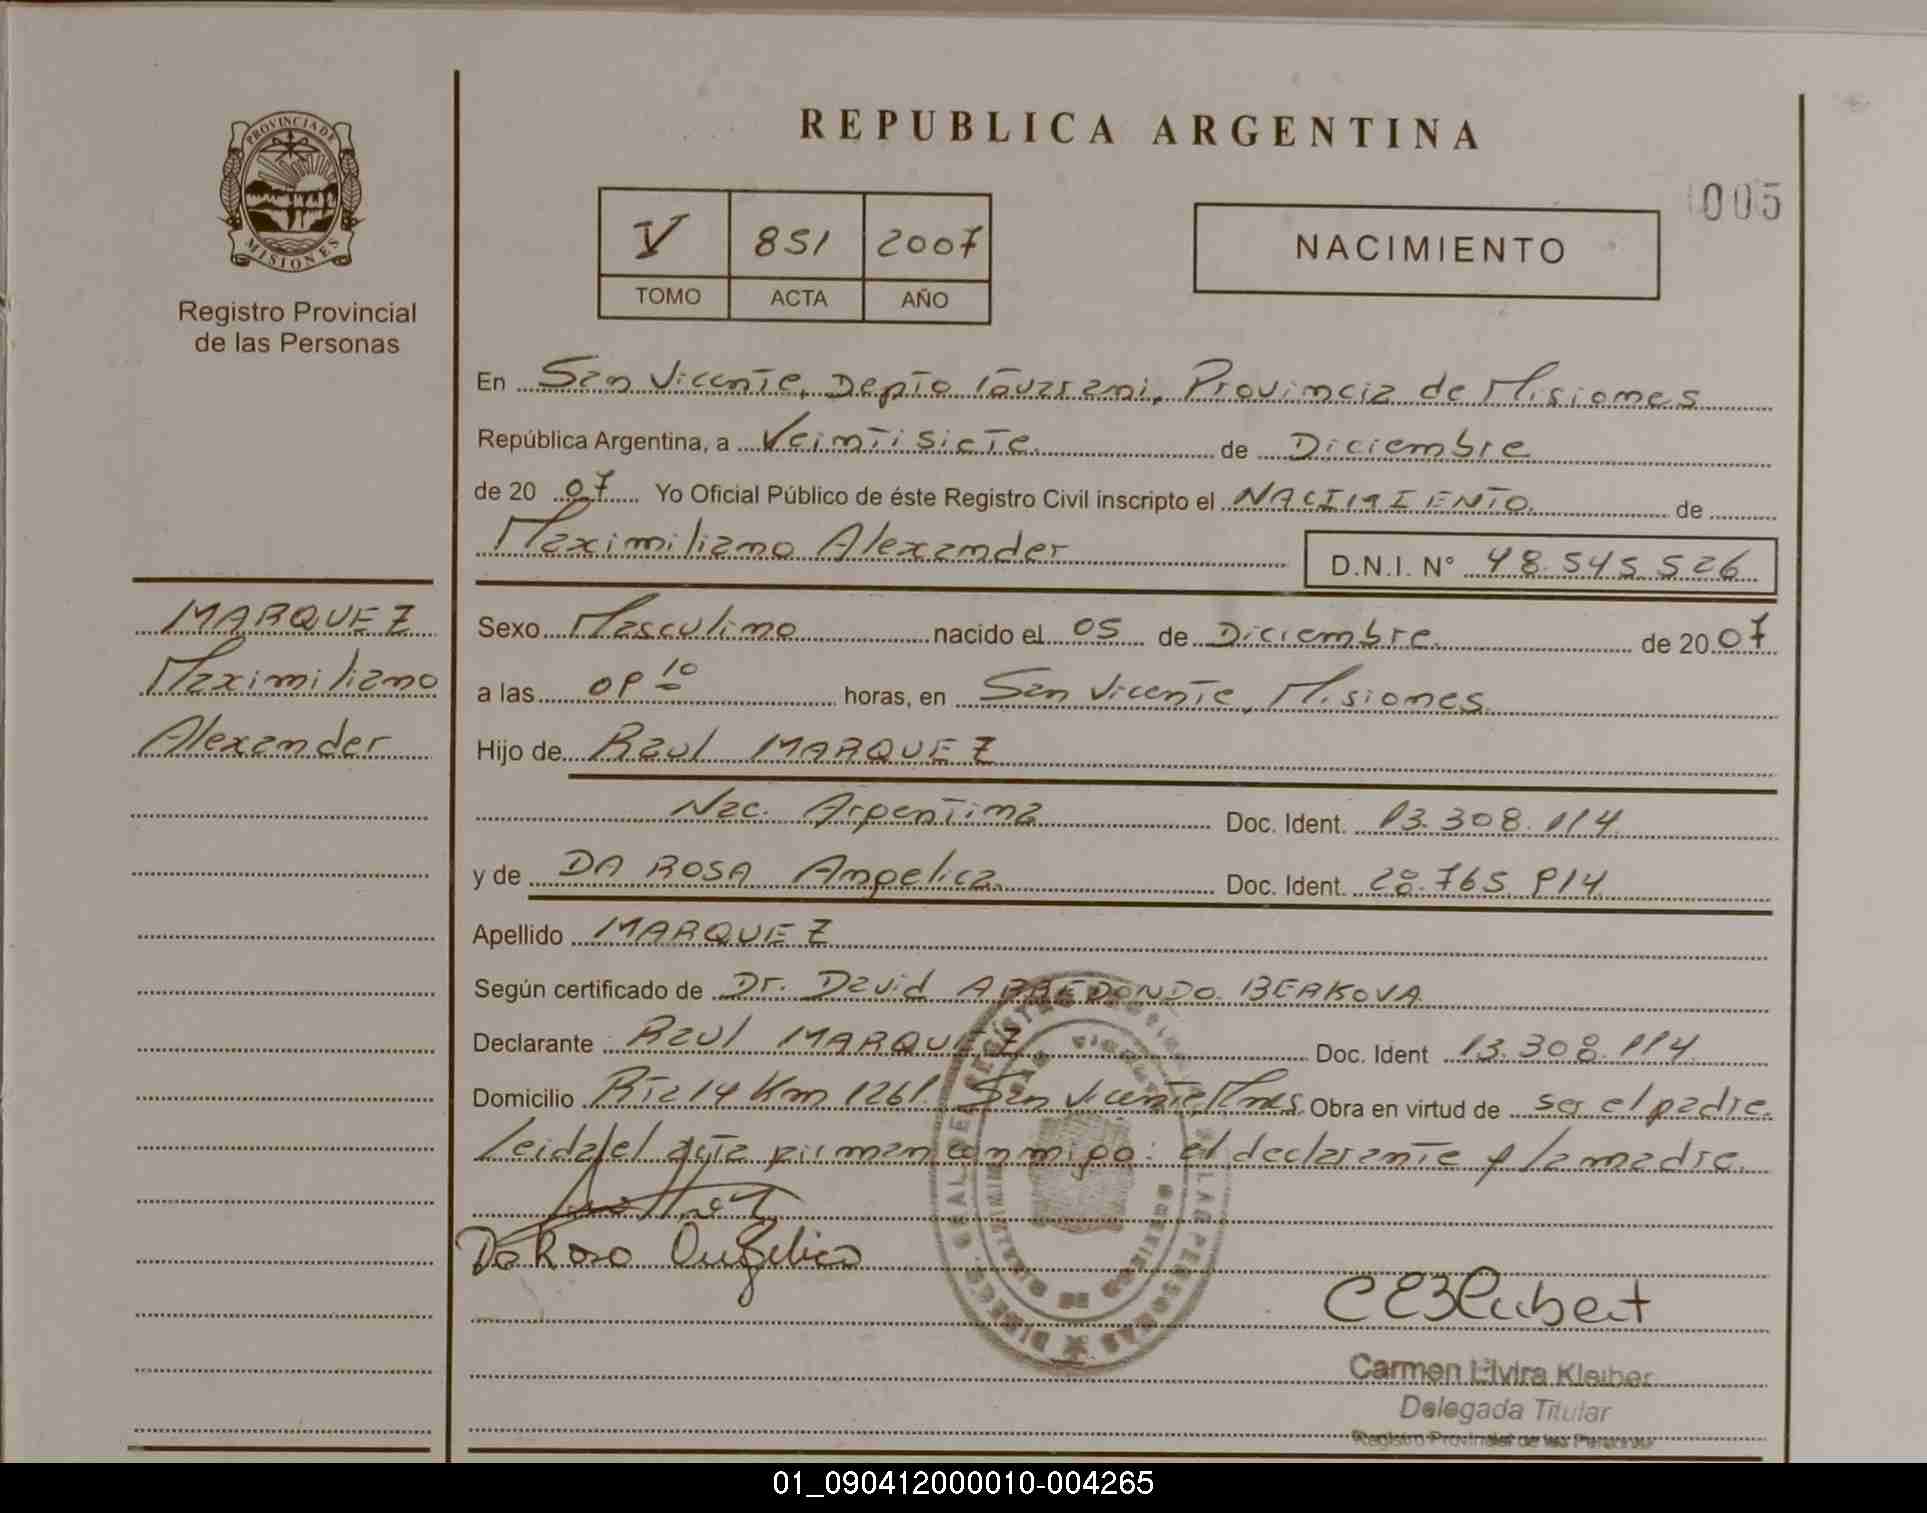 REPUBLICA ARGENTINA
005
PROVINCIA DE
MISIONES
Registro Provincial
de las Personas
V 851 2007
TOMO ACTA AÑO
NACIMIENTO
En San Vicente, Depto Guarani, Provincia de Misiones
República Argentina, a Veintisiete de Diciembre
de 2007 Yo Oficial Público de éste Registro Civil inscripto el NACIMIENTO de
Maximiliano Alexander D.N.I. N° 48.545.526
MARQUEZ
Maximiliano
Alexander
Sexo Masculino nacido el 05 de Diciembre de 2007
a las 09 10 horas, en San Vicente, Misiones
Hijo de Raul MARQUEZ
Nac. Argentina Doc. Ident. 13.308.114
y de DA ROSA Angelica Doc. Ident. 28.765.914
Apellido MARQUEZ
Según certificado de Dr. David ARREDONDO BERKOVA
Declarante Raul MARQUEZ Doc. Ident 13.308.114
Domicilio Rta 14 Km 1261 San Vicente Mnes Obra en virtud de ser el padre.
Leida el acta firman conmigo: el declarante y la madre.
Da Rosa Angelica
Carmen Elvira Kleiber
Delegada Titular
Registro Provincial de las Personas
01_090412000010-004265